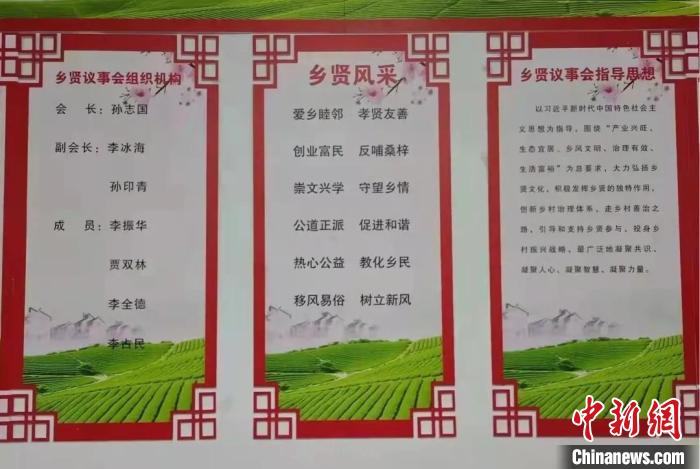 乡贤议事会组织机构
会 长：孙志国
副会长：李冰海
孙印青
成 员：李振华
贾双林
李全德
李占民
乡贤风采
爱乡睦邻 孝贤友善
创业富民 反哺桑梓
崇文兴学 守望乡情
公道正派 促进和谐
热心公益 教化乡民
移风易俗 树立新风
乡贤议事会指导思想
以习近平新时代中国特色社会主
义思想为指导，围绕“产业兴旺、
生态宜居、乡风文明、治理有效、
生活富裕”为总要求，大力弘扬乡
贤文化，积极发挥乡贤的独特作用，
创新乡村治理体系，走乡村善治之
路，引导和支持乡贤参与、投身乡
村振兴战略，最广泛地凝聚共识、
凝聚人心、凝聚智慧、凝聚力量。
中新网
Chinanews.com